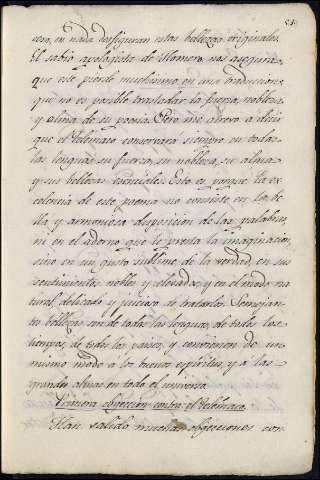 cero, en nada desfiguran estas bellezas originales.
El sabio apologista de Homero nos asegura,
que este pierde muchisimo en una traduccion;
que no es posible trasladar la fuerza, nobleza,
y alma de su poesia. Pero me atrevo á decir
que el Telemaco conservará siempre en todas
las lenguas su fuerza, su nobleza, su alma,
y sus bellezas esenciales. Esto es porque la ex-
celencia de este poema no consiste en la be-
lla y armoniosa disposicion de las palabras,
ni en el adorno que le presta la imaginacion,
sino en un gusto sublime de la verdad, en sus
sentimientos nobles y elevados, y en el modo na-
tural, delicado y juicioso de tratarlos. Semejan-
tes bellezas son de todas las lenguas, de todos los
tiempos, de todos los paises, y convienen de un
mismo modo á los buenos espíritus, y á las
grandes almas en todo el universo.
Primera objeccion contra el Telemaco.
Han salido muchas objecciones con-